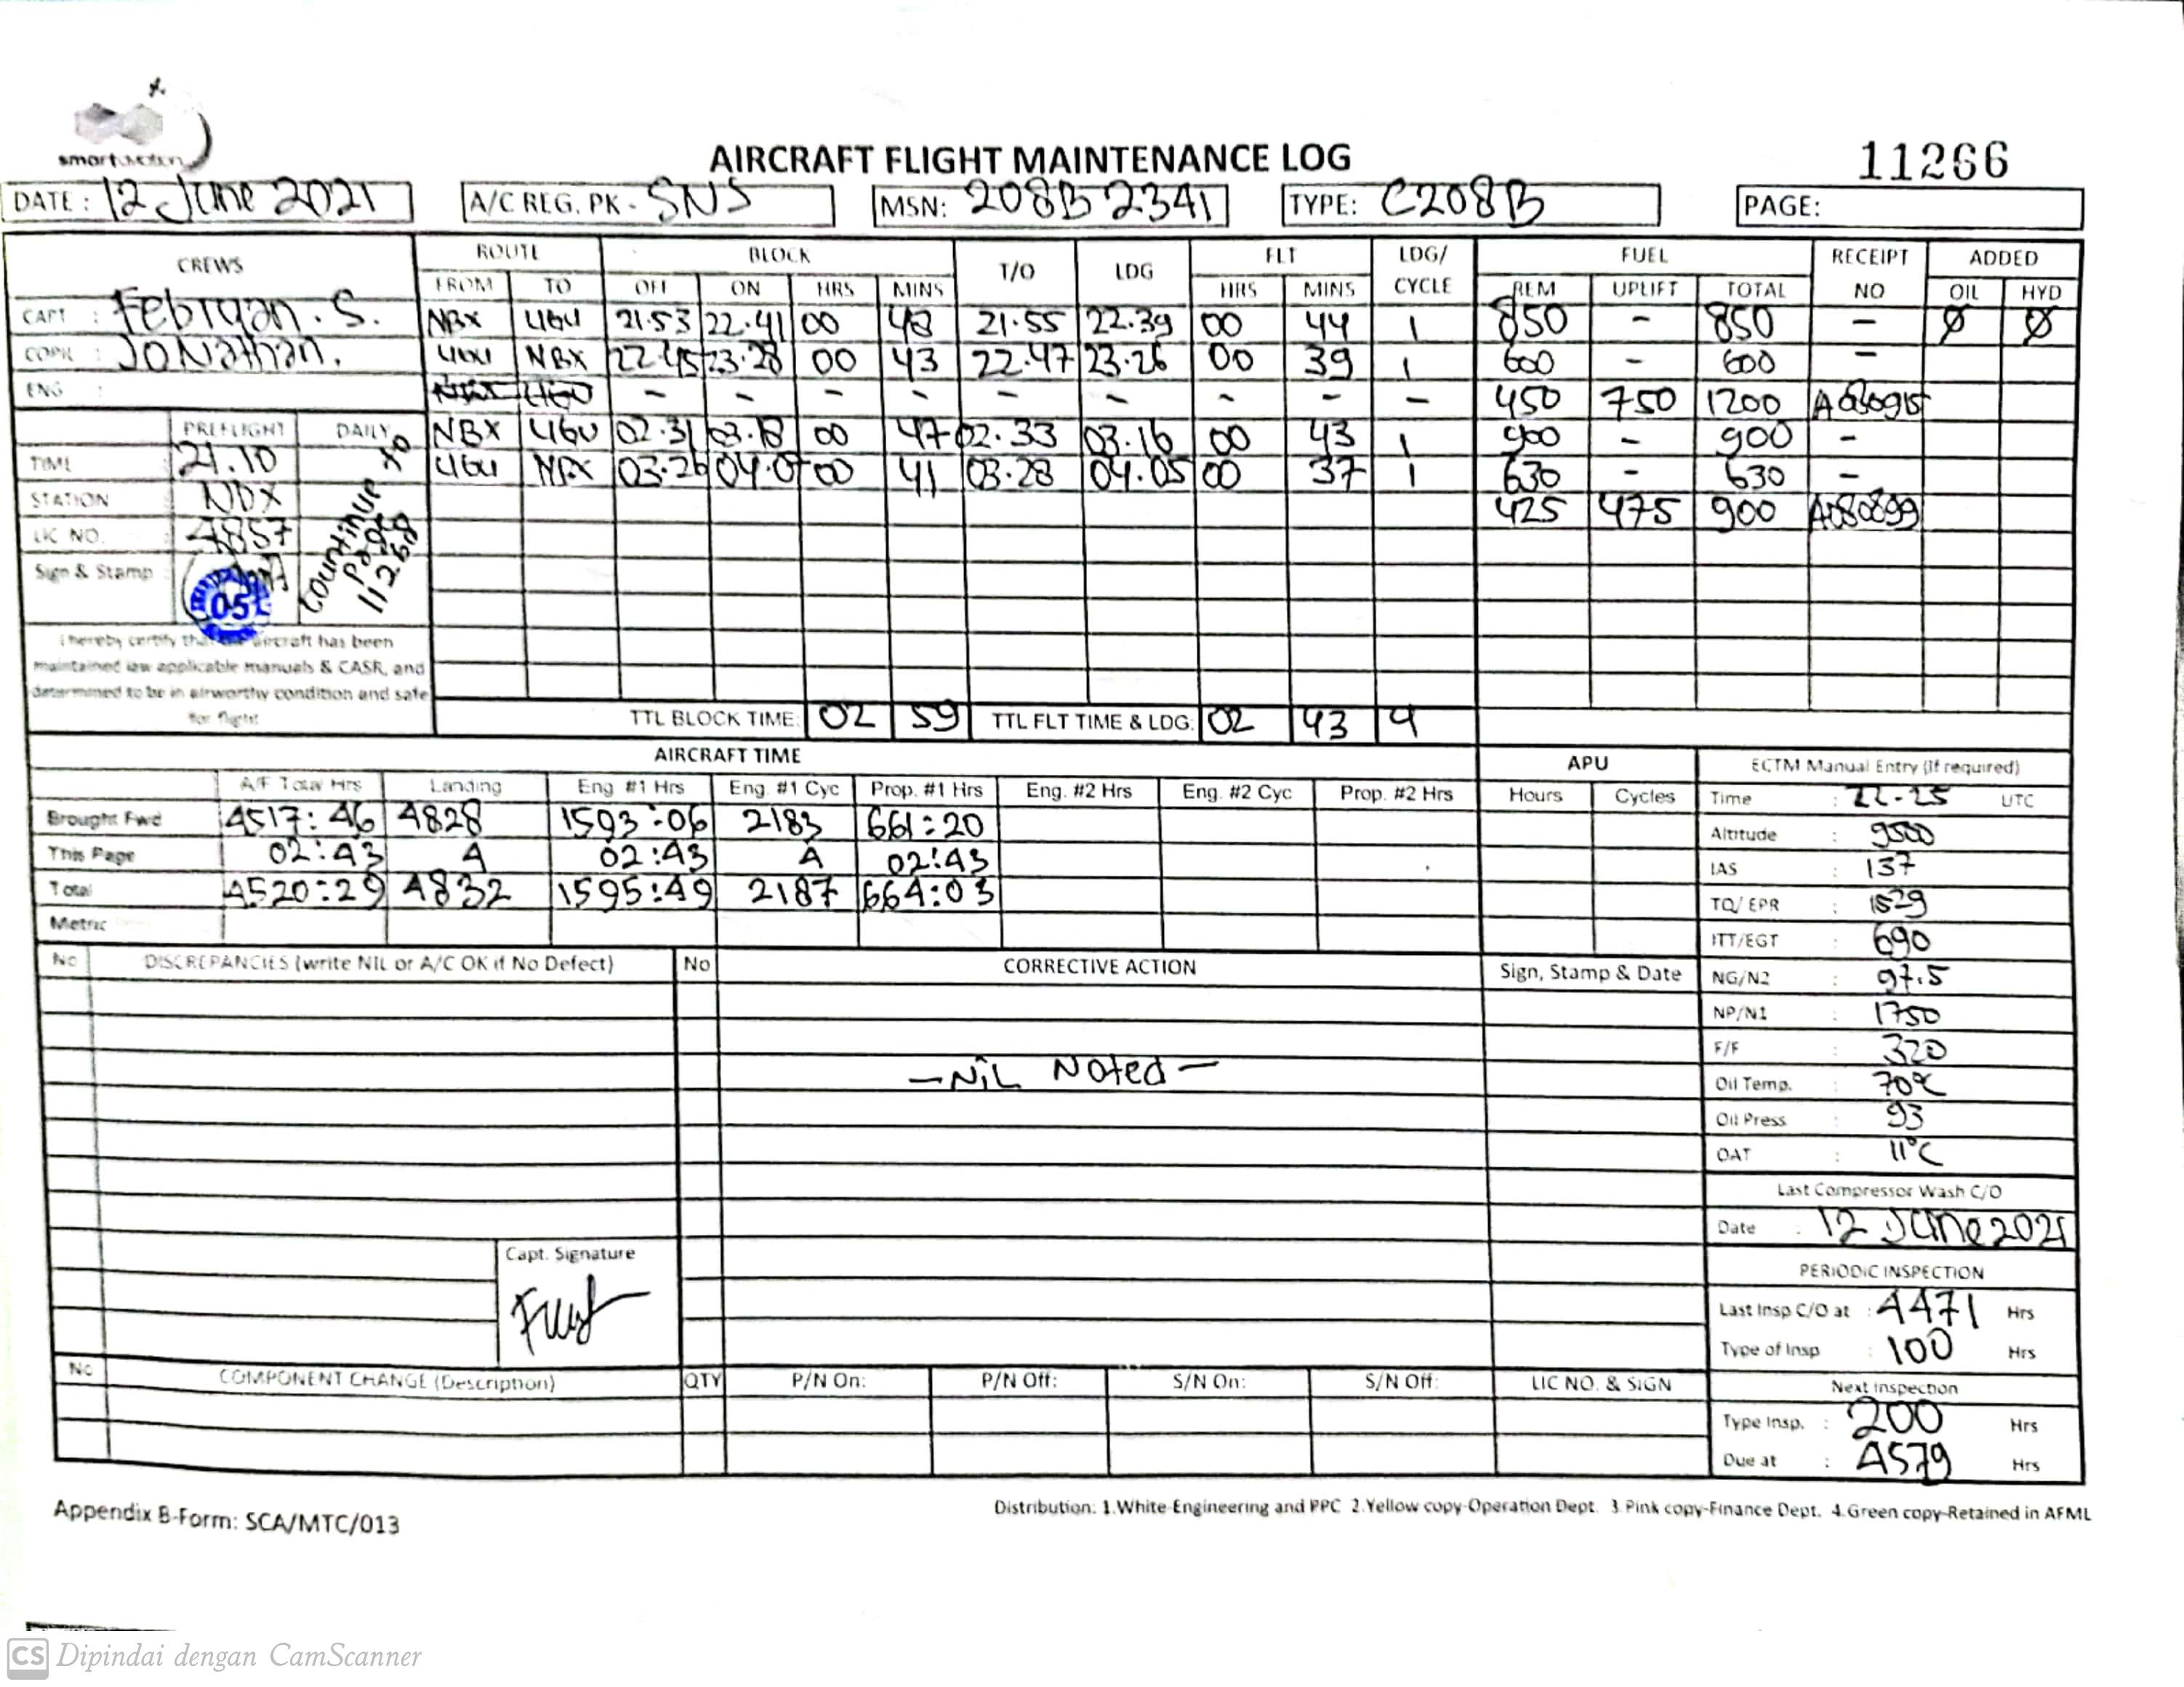 smart aviation
AIRCRAFT FLIGHT MAINTENANCE LOG
11266
DATE: 12 June 2021
A/C REG. PK - SNS
MSN: 208B 2341
TYPE: C208B
PAGE:
CREWS ROUTE BLOCK T/O LDG FLT LDG/ CYCLE FUEL RECEIPT NO ADDED
FROM TO OFF ON HRS MINS HRS MINS REM UPLIFT TOTAL OIL HYD
CAPT : Febrian. S.
COPIL : Jonathan.
ENG :
NBX UGU 21.53 22.41 00 48 21.55 22.39 00 44 1 850 - 850 - Ø Ø
UGU NBX 22.45 23.28 00 43 22.47 23.26 00 39 1 600 - 600 -
NBX UGU - - - - - - - - - 450 750 1200
NBX UGU 02.31 03.18 00 47 02.33 03.16 00 43 1 900 - 900 -
UGU NBX 03.26 04.07 00 41 03.28 04.05 00 37 1 630 - 630 -
425 475 900 A080899
PREFLIGHT DAILY
TIME 21.10
STATION NBX
LIC NO. 4857
Sign & Stamp 05
Countinue to
Page
11268
I hereby certify that the aircraft has been
maintained iaw applicable manuals & CASR, and
determined to be in airworthy condition and safe
for flight
TTL BLOCK TIME: 02 59 TTL FLT TIME & LDG: 02 43 4
AIRCRAFT TIME
A/F Total Hrs Landing Eng #1 Hrs Eng. #1 Cyc Prop. #1 Hrs Eng. #2 Hrs Eng. #2 Cyc Prop. #2 Hrs
Brought Fwd 4517:46 4828 1593:06 2183 661:20
This Page 02:43 4 02:43 4 02:43
Total 4520:29 4832 1595:49 2187 664:03
Metric
APU
Hours Cycles
ECTM Manual Entry (If required)
Time : 22.25 UTC
Altitude : 9500
IAS : 137
TQ/ EPR : 1529
ITT/EGT : 690
NG/N2 : 97.5
NP/N1 : 1750
F/F : 320
Oil Temp. : 70°C
Oil Press : 93
OAT : 11°C
Last Compressor Wash C/O
Date : 12 June 2021
PERIODIC INSPECTION
Last Insp C/O at : 4471 Hrs
Type of Insp : 100 Hrs
Next Inspection
Type Insp. : 200 Hrs
Due at : 4579 Hrs
No DISCREPANCIES (write NIL or A/C OK if No Defect) No CORRECTIVE ACTION Sign, Stamp & Date
- NiL Noted -
Capt. Signature
No COMPONENT CHANGE (Description) QTY P/N On: P/N Off: S/N On: S/N Off: LIC NO. & SIGN
Appendix B-Form: SCA/MTC/013
Distribution: 1.White-Engineering and PPC 2.Yellow copy-Operation Dept. 3.Pink copy-Finance Dept. 4.Green copy-Retained in AFML
CS Dipindai dengan CamScanner